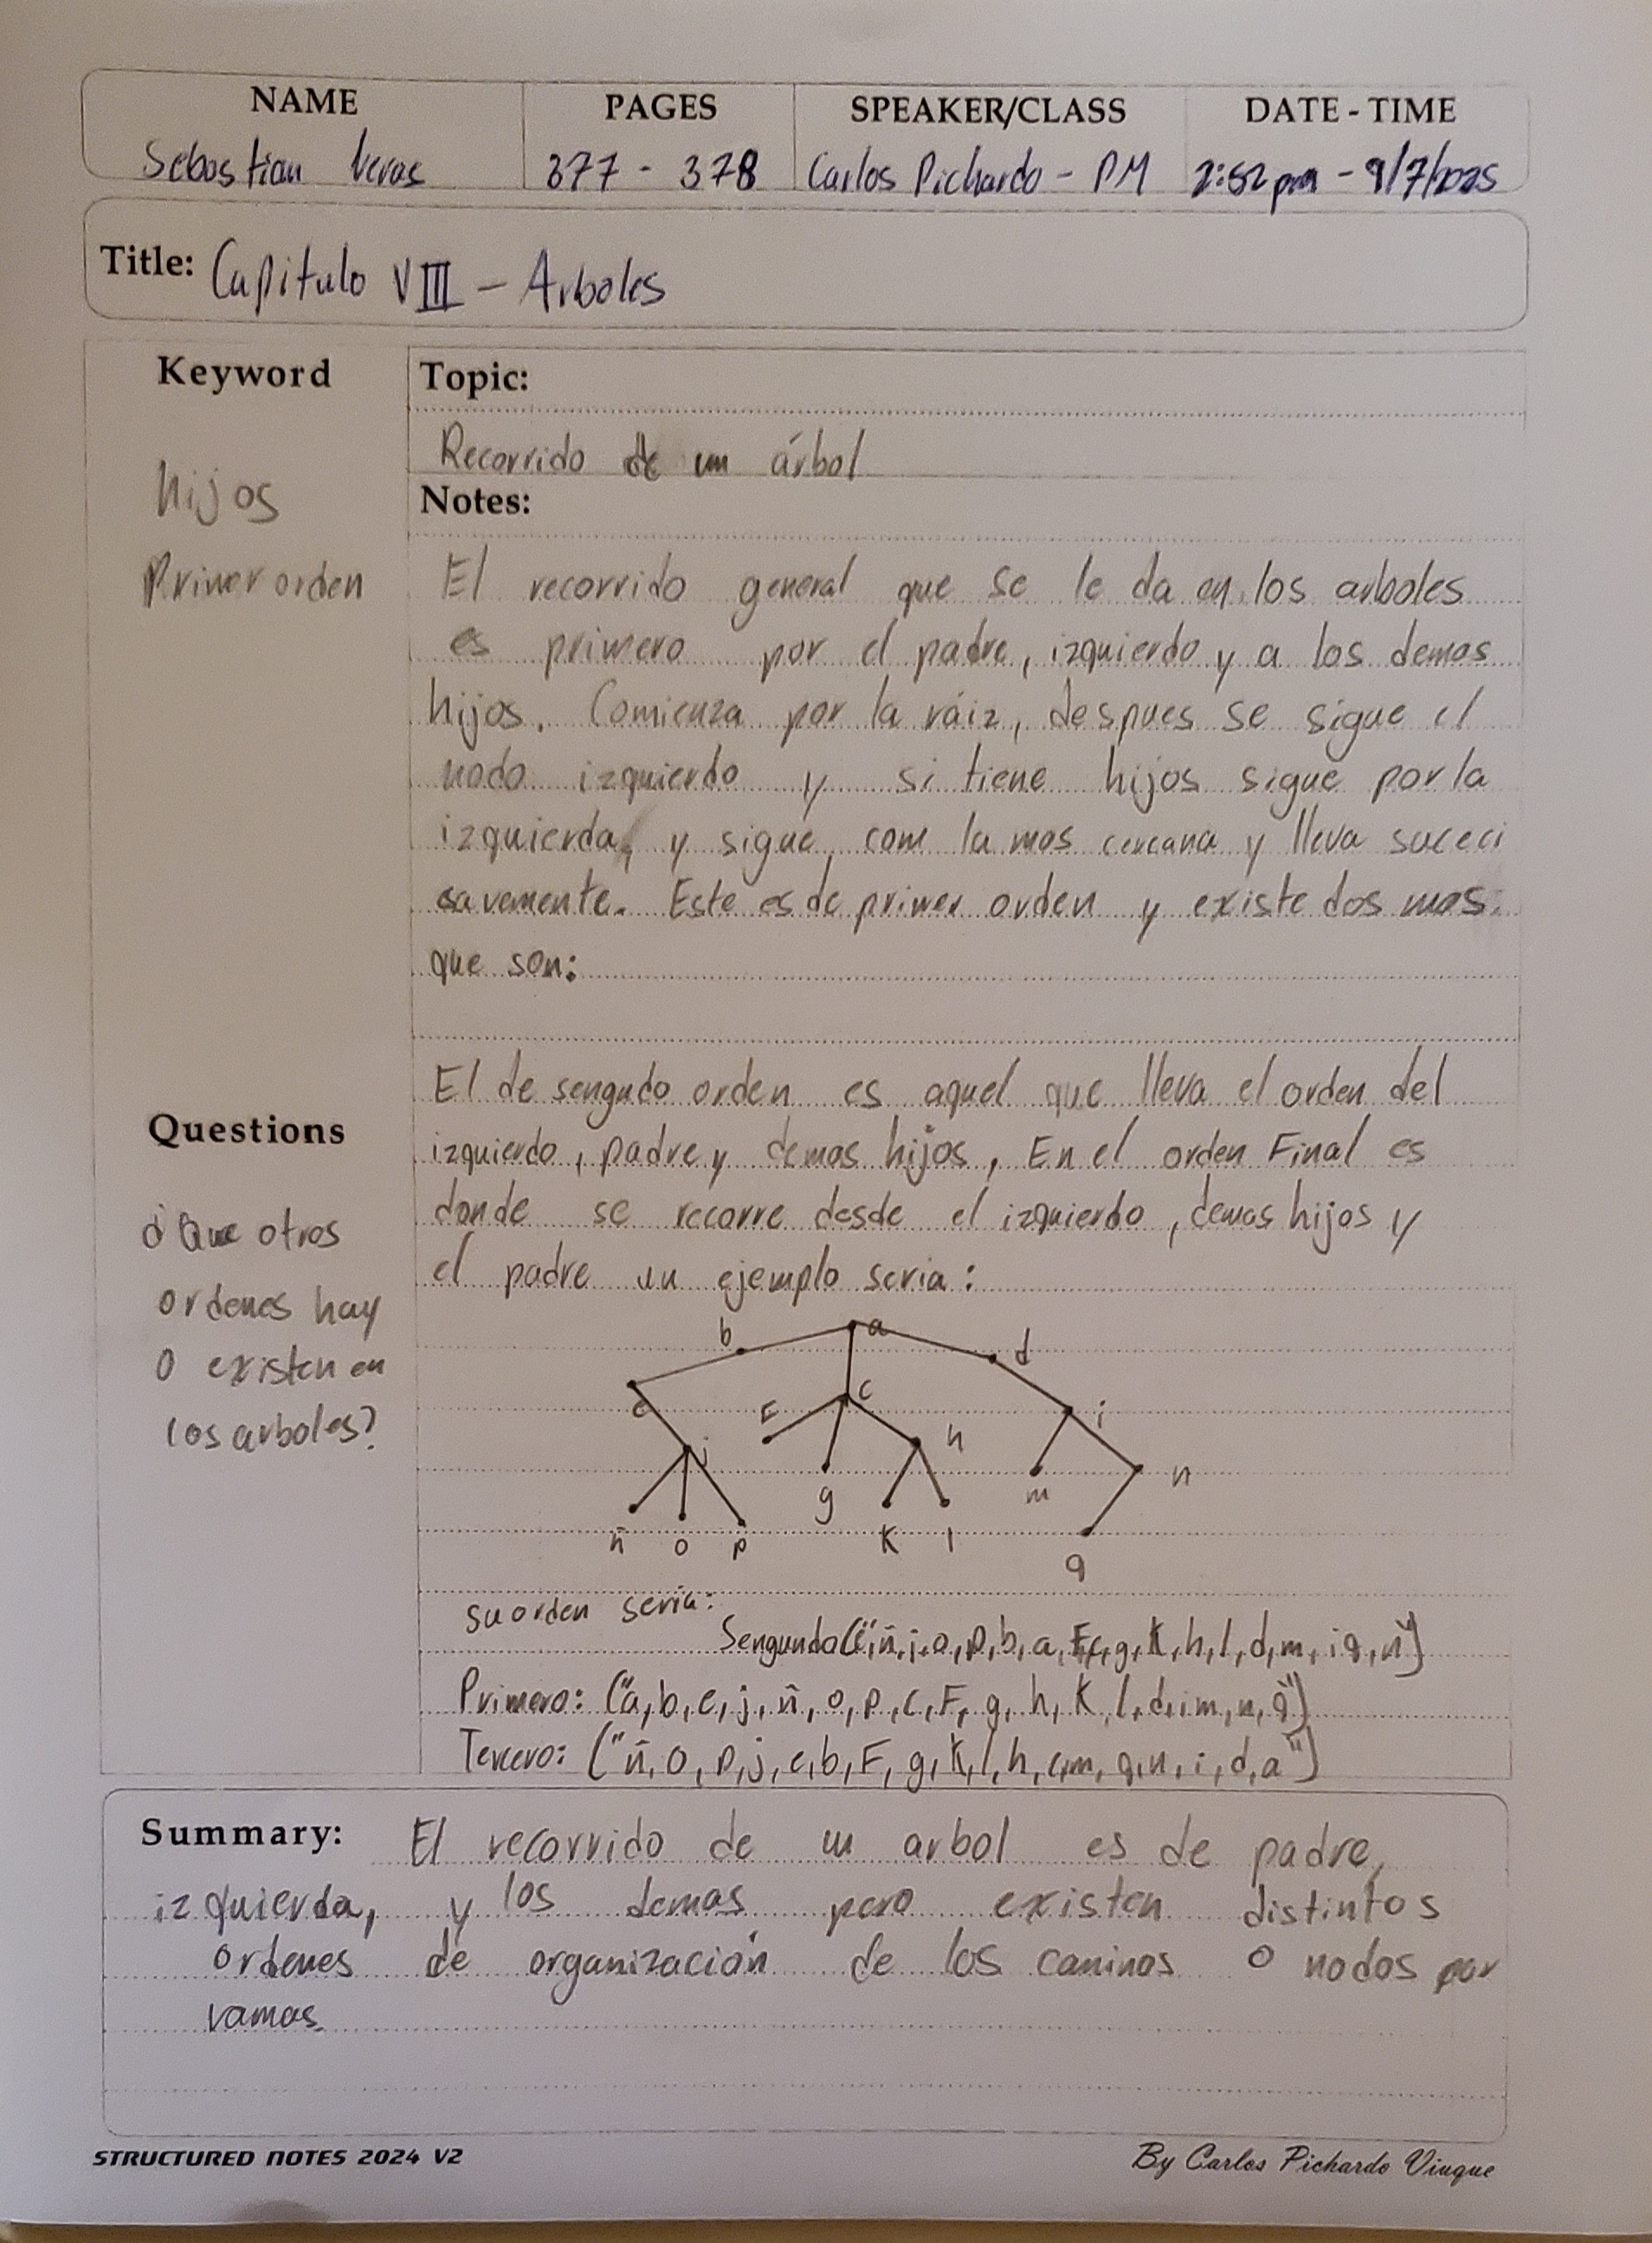 NAME PAGES SPEAKER/CLASS DATE - TIME
Sebastian Veras 377 - 378 Carlos Pichardo - PM 2:52 pm - 9/7/2025
Title: Capitulo VIII - Arboles
Keyword
hijos
Primer orden
Topic:
Recorrido de un árbol
Notes:
El recorrido general que se le da en los arboles
es primero por el padre, izquierdo y a los demas
hijos. Comienza por la ráiz, despues se sigue el
nodo izquierdo y si tiene hijos sigue por la
izquierda, y sigue, com la mas cercana y lleva suceci
savemente. Este es de primer orden y existe dos mas.
que son:
El de sengudo orden es aquel que lleva el orden del
izquierdo, padre y demas hijos, En el orden Final es
donde se recorre desde el izquierdo, demas hijos y
el padre un ejemplo seria:
Questions
¿Que otros
ordenes hay
o existen en
los arboles?
b a d
e F c h i
j g m n
ñ o p K l q
su orden seria:
Sengundo("e, ñ, j, o, p, b, a, F, c, g, K, h, l, d, m, i q, n")
Primero: ("a, b, e, j, ñ, o, p, c, F, g, h, K, l, d, i m, n, q")
Tercero: ("ñ, o, p, j, e, b, F, g, K, l, h, c, m, q, n, i, d, a")
Summary: El recorrido de un arbol es de padre,
izquierda, y los demas pero existen distintos
ordenes de organización de los caminos o nodos por
ramas
STRUCTURED NOTES 2024 V2
By Carlos Pichardo Viuque